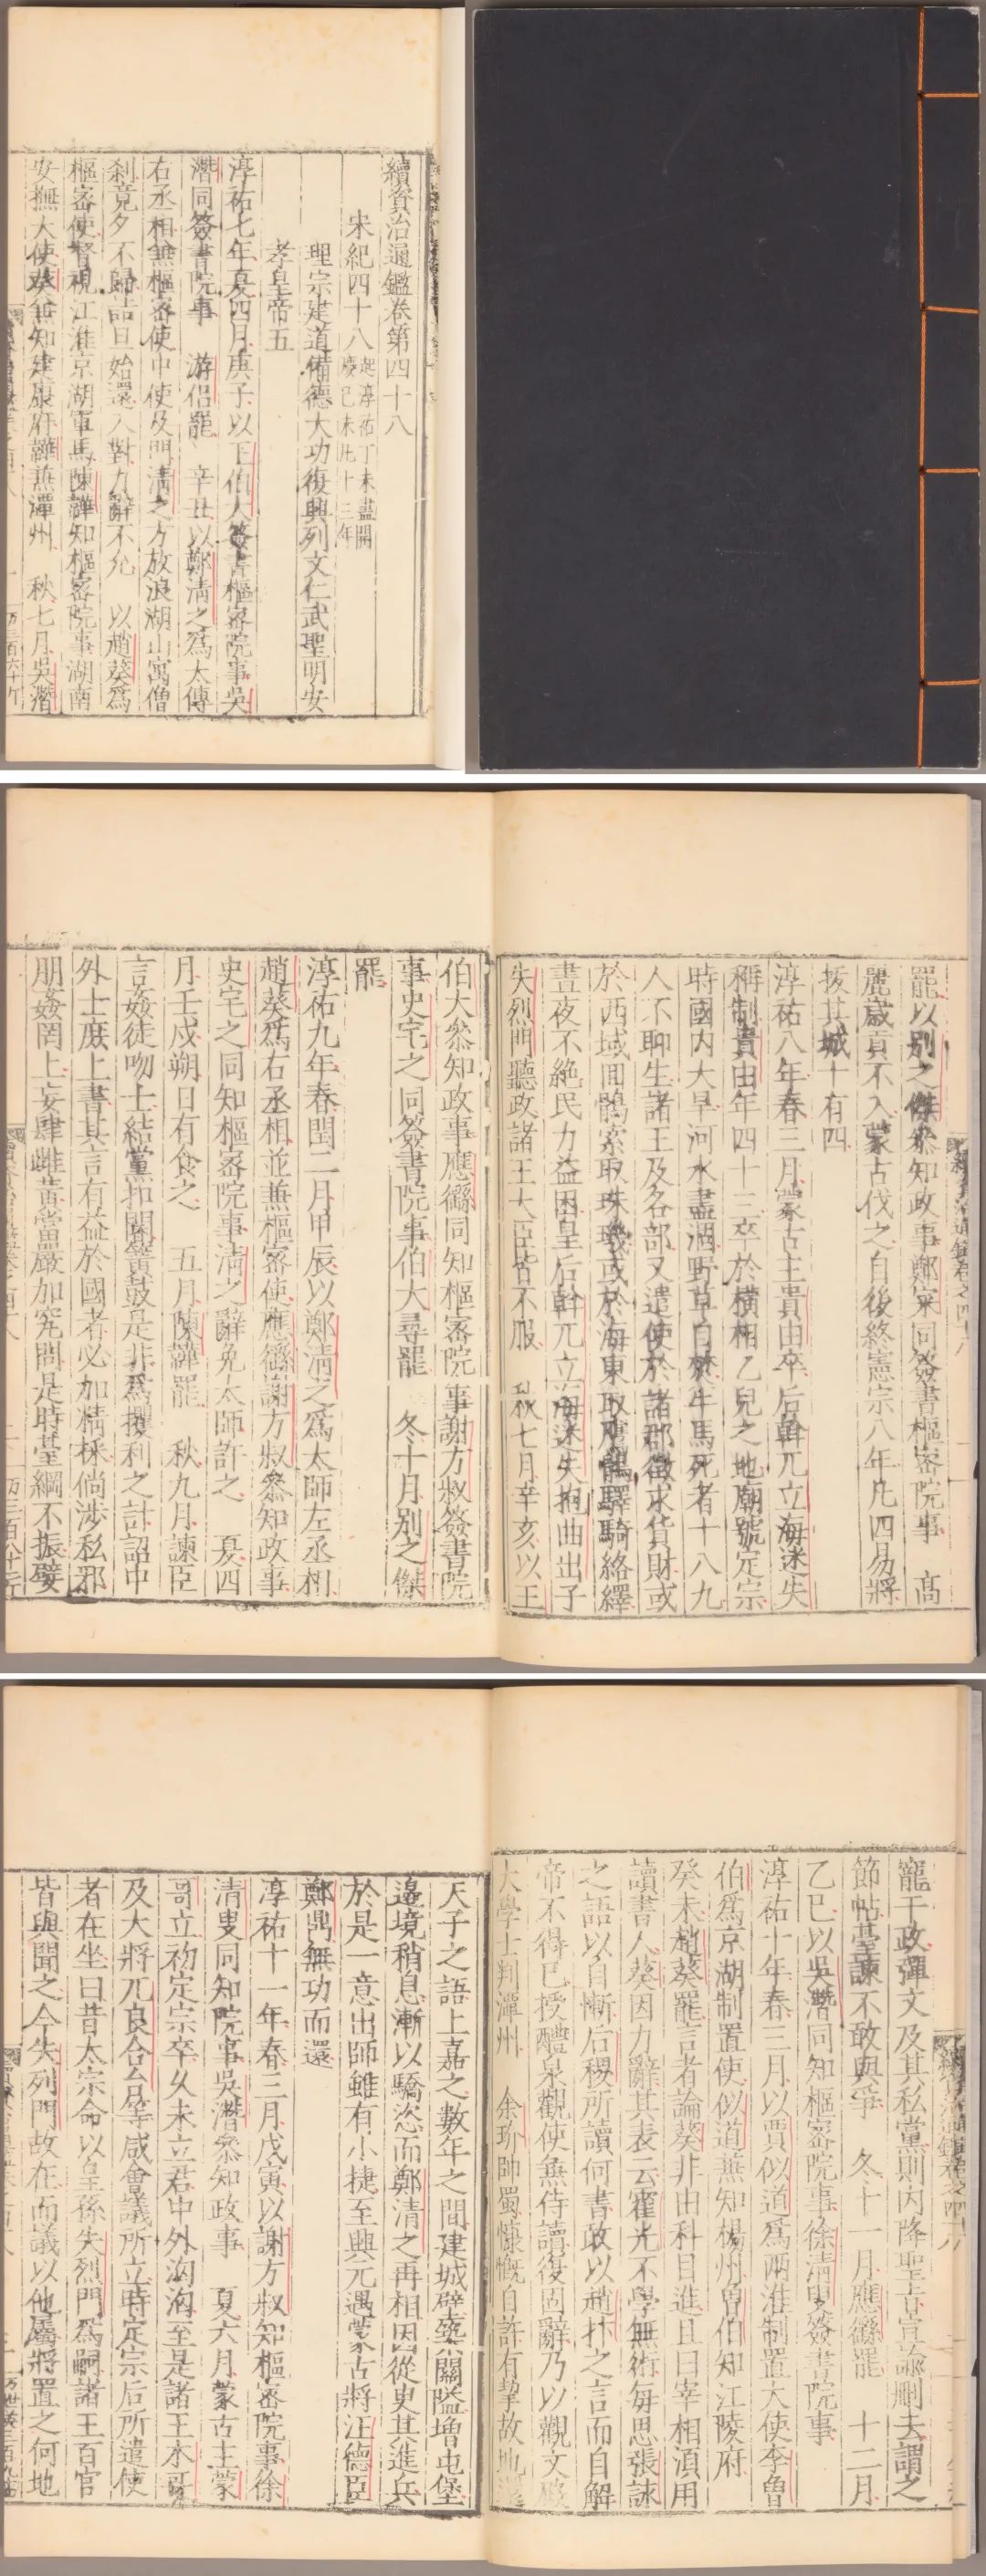 續資治通鑑卷第四十八
宋紀四十八 起淳祐丁未盡開慶己未凡十三年
理宗建道備德大功復興列文仁武聖明安
孝皇帝五
淳祐七年夏四月庚子以王伯大簽書樞密院事吳
潛同簽書院事 游侣罷 辛丑以鄭清之爲太傅
右丞相兼樞密使中使及門清之方放浪湖山寓僧
刹竟夕不歸詰旦始還入對力辭不允 以趙葵爲
樞密使督視江淮京湖軍馬陳韡知樞密院事湖南
安撫大使葵兼知建康府韡兼潭州 秋七月吳潛
罷以別之傑叅知政事鄭寀同簽書樞密院事 高
麗歲貢不入蒙古伐之自後終憲宗八年凡四易將
拔其城十有四
淳祐八年春三月蒙古主貴由卒后斡兀立海迷失
稱制貴由年四十三卒於橫相乙兒之地廟號定宗
時國内大旱河水盡涸野草自焚牛馬死者十八九
人不聊生諸王及各部又遣使於諸郡徵求貨財或
於西域囬鶻索取珠璣或於海東取鷹鶻驛騎絡繹
晝夜不絶民力益困皇后斡兀立海迷失抱曲出子
失烈門聽政諸王大臣皆不服 秋七月辛亥以王
伯大叅知政事應𦅜同知樞密院事謝方叔簽書院
事史宅之同簽書院事伯大尋罷 冬十月別之傑
罷
淳祐九年春閏二月甲辰以鄭清之爲太師左丞相
趙葵爲右丞相並兼樞密使應𦅜謝方叔叅知政事
史宅之同知樞密院事清之辭免太師許之 夏四
月壬戍朔日有食之 五月陳韡罷 秋九月諫臣
言姦徒吻士結黨扣閽簧鼓是非爲攫利之計詔中
外上庶上書其言有益於國者必加精採倘涉私邪
朋姦罔上妄肆雌黄當嚴加究問是時臺綱不振嬖
寵干政彈文及其私黨則内降聖旨宣諭刪去謂之
節帖臺諫不敢與爭 冬十一月應𦅜罷 十二月
乙巳以吳潛同知樞密院事徐清叟簽書院事
淳祐十年春三月以賈似道爲兩淮制置大使李曾
伯爲京湖制置使似道兼知楊州曾伯知江陵府
癸未趙葵罷言者論葵非由科目進且曰宰相湏用
讀書人葵因力辭其表云霍光不學無術每思張詠
之語以自慚后稷所讀何書敢以趙抃之言而自解
帝不得已授醴泉觀使兼侍讀復固辭乃以觀文殿
大學士判潭州 余玠帥蜀慷慨自許有挈故地還
天子之語上嘉之數年之間建城壁築關隘增屯堡
邉境稍息漸以驕恣而鄭清之再相因從臾其進兵
於是一意出師雖有小捷至興元遇蒙古將汪德臣
鄭鼎無功而還
淳祐十一年春二月戊寅以謝方叔知樞密院事徐
清叟同知院事吳潛叅知政事 夏六月蒙古主蒙
哥立初定宗卒久未立君中外洶洶至是諸王木哥
及大將兀良合台等咸會議所立時定宗后所遣使
者在坐曰昔太宗命以皇孫失烈門爲嗣諸王百官
皆與聞之今失列門故在而議以他屬將置之何地